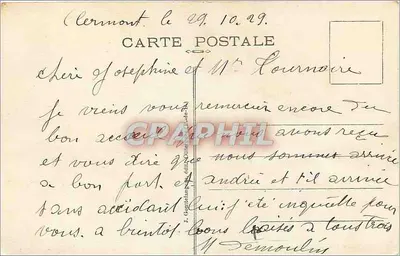 Clermont le 29.10.29.
CARTE POSTALE
chère Joséphine et Mr Tournaire
je viens vous remercier encore du
bon accueil que nous avons reçu
et vous dire que nous sommes arrivée
a bon port. et andrée et t'il arrivée
sans accidant j'été inquiette pour
vous. a bientôt bons baisés a tous trois
M Demoulin
CPAPHIL